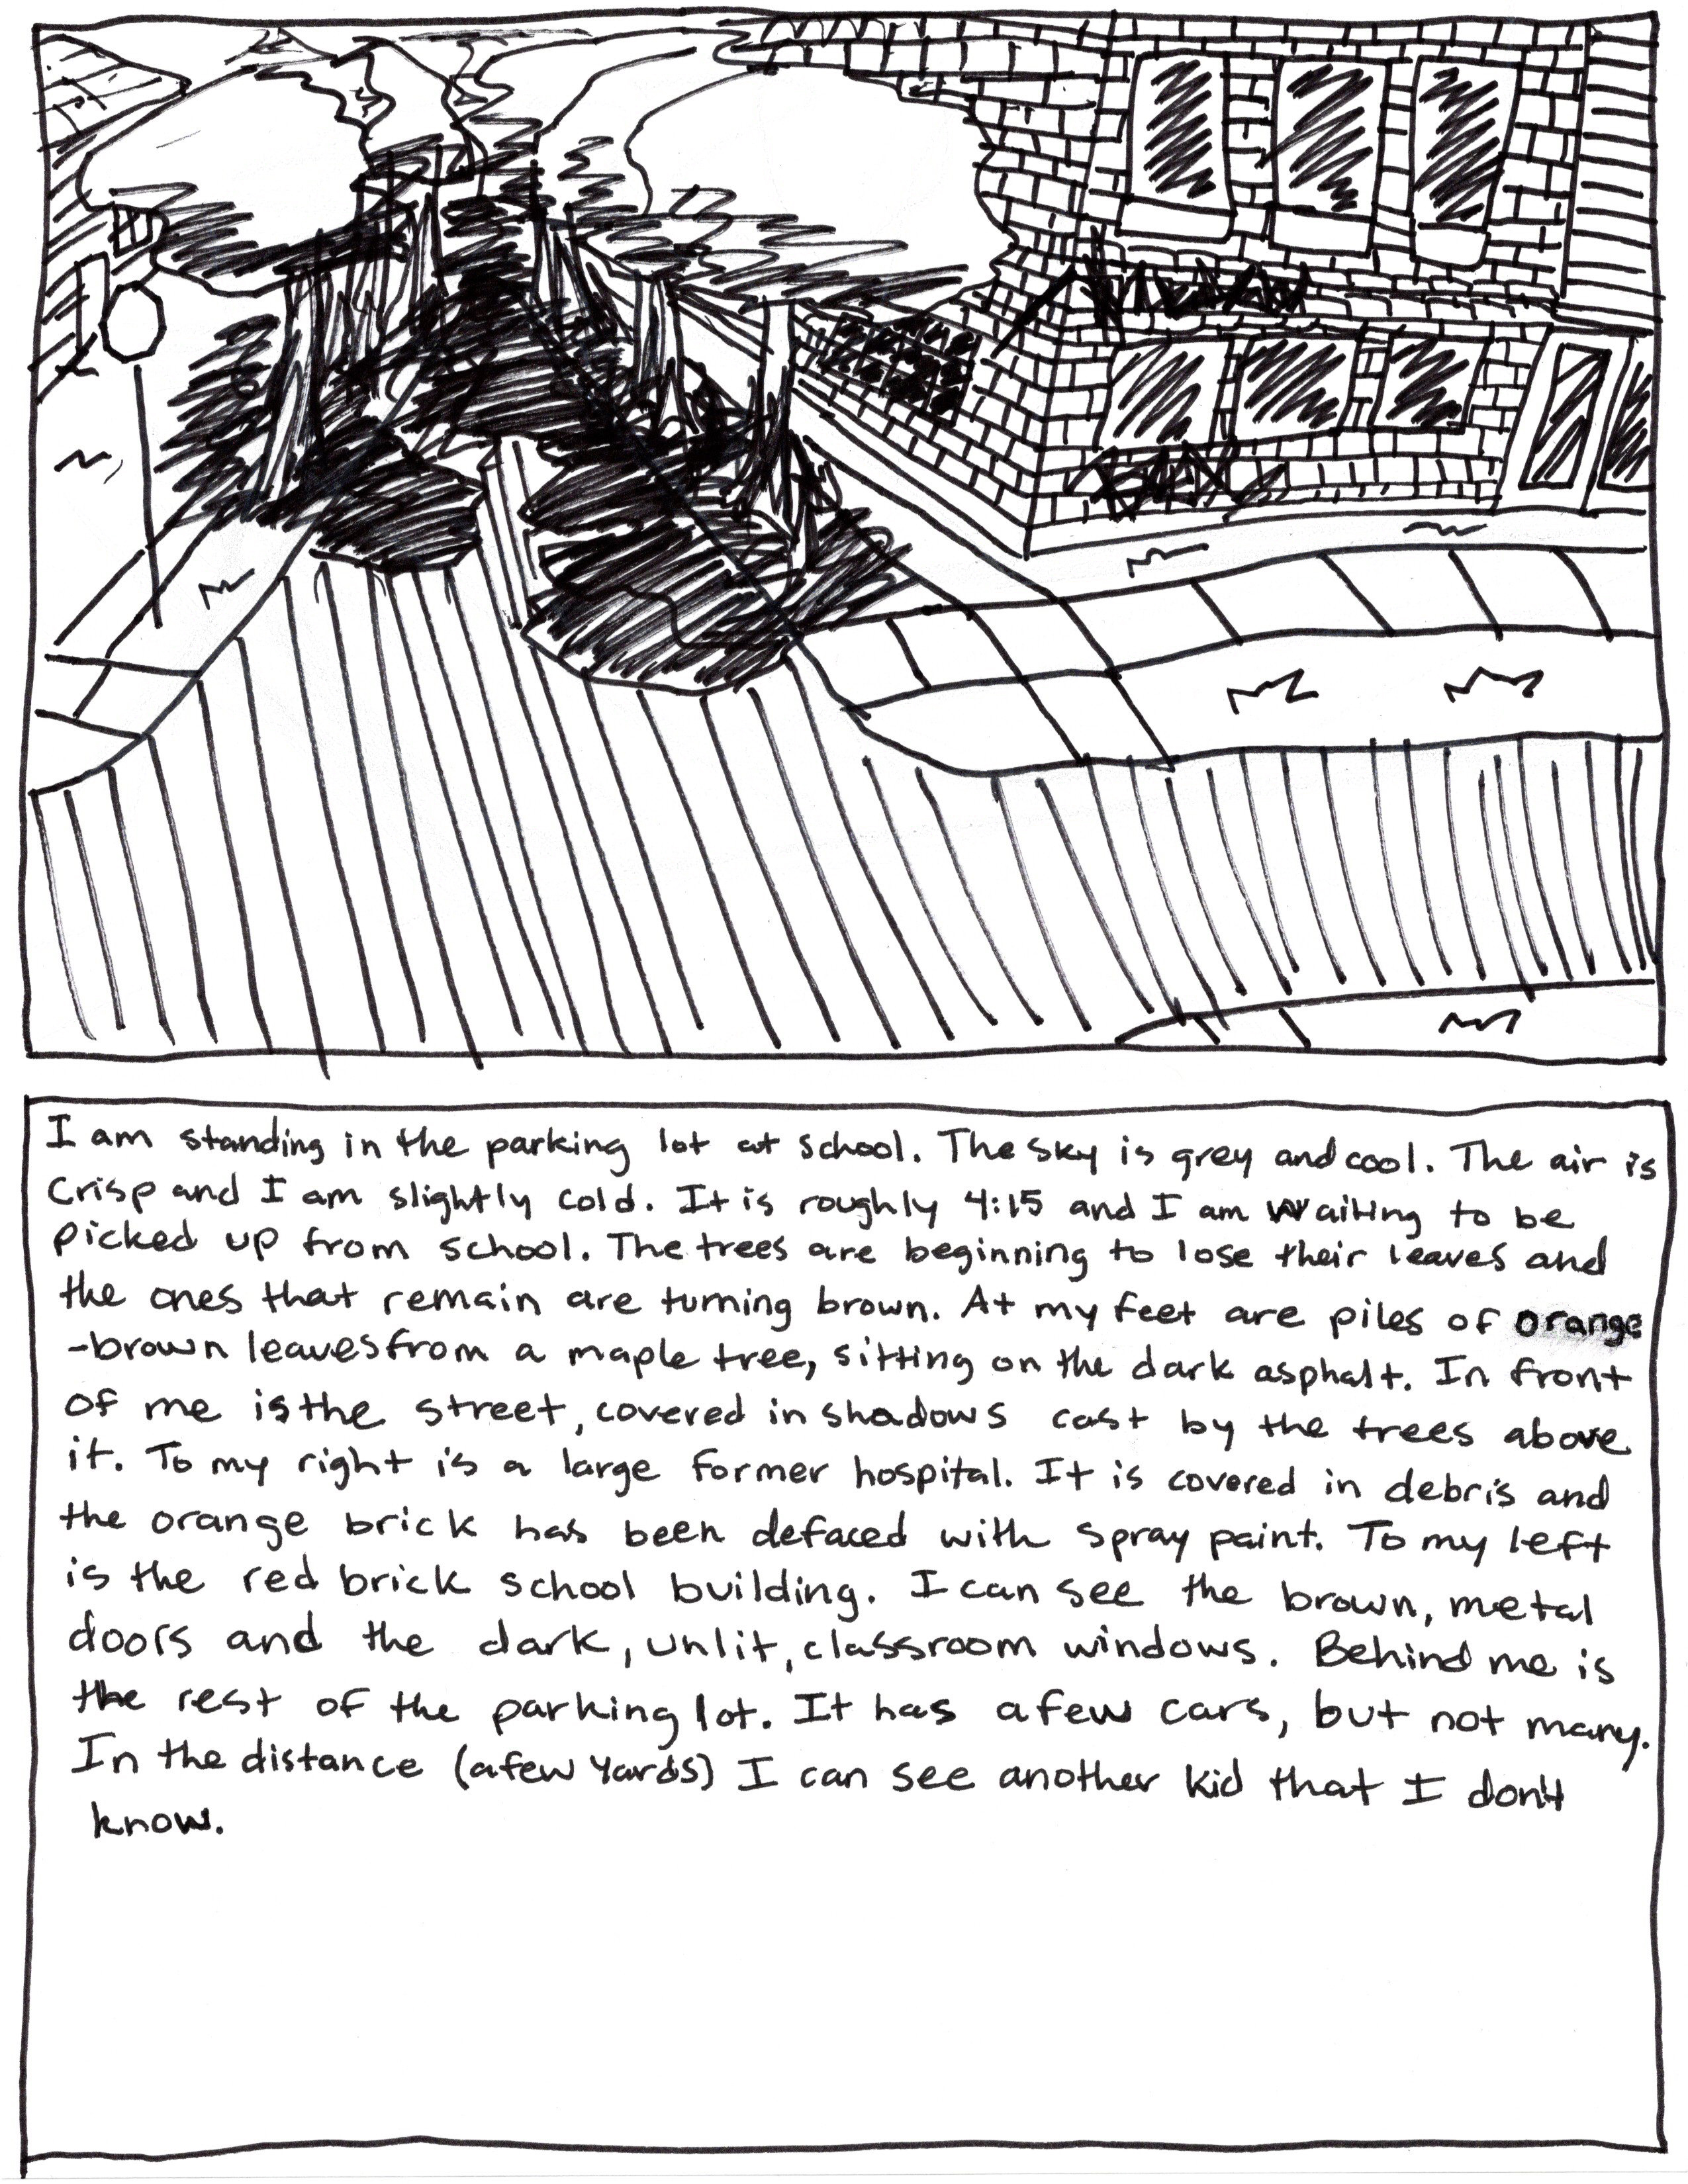 I am standing in the parking lot at school. The sky is grey and cool. The air is
crisp and I am slightly cold. It is roughly 4:15 and I am waiting to be
picked up from school. The trees are beginning to lose their leaves and
the ones that remain are turning brown. At my feet are piles of orange
-brown leaves from a maple tree, sitting on the dark asphalt. In front
of me is the street, covered in shadows cast by the trees above
it. To my right is a large former hospital. It is covered in debris and
the orange brick has been defaced with spray paint. To my left
is the red brick school building. I can see the brown, metal
doors and the dark, unlit, classroom windows. Behind me is
the rest of the parking lot. It has a few cars, but not many.
In the distance (a few yards) I can see another kid that I don't
know.